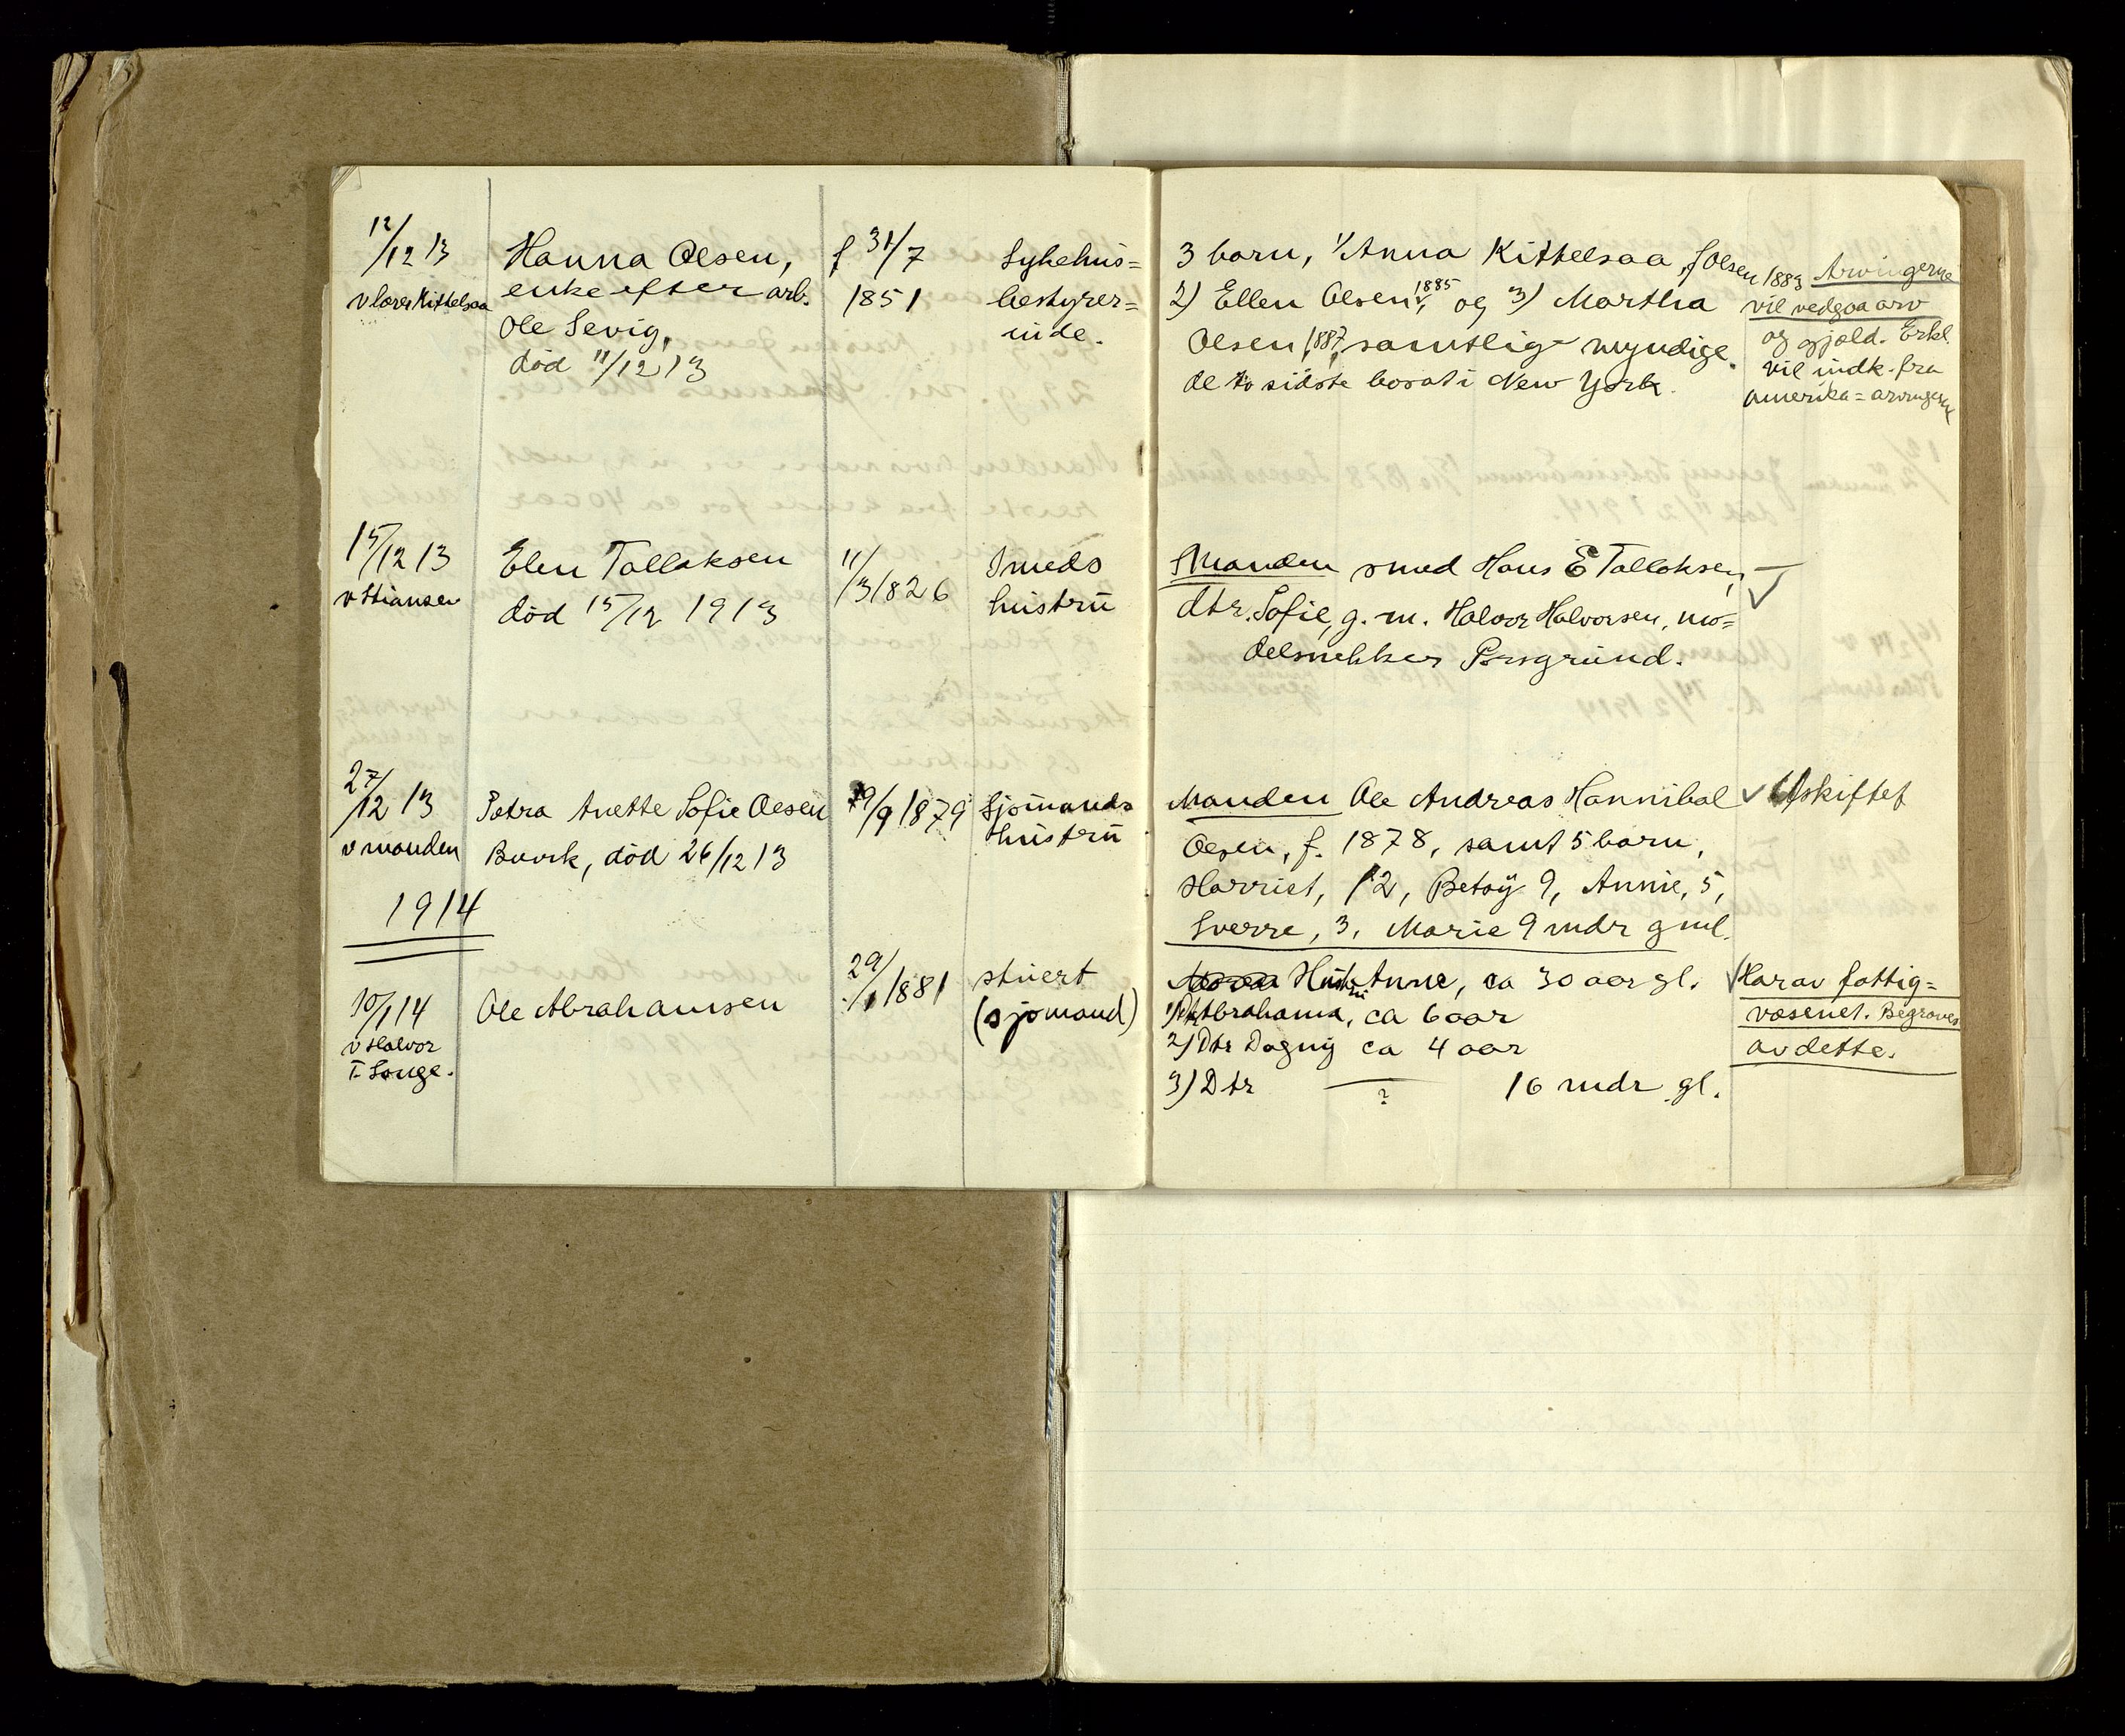 12/12 13
v lærer Kittelsaa
Hanna Olsen,
enke efter arb.
Ole Sevig,
död 11/12 13
f 31/7
1851
Sykehus=
bestyrer=
inde.
3 barn, 1/ Anna Kittelsaa, f Olsen 1883
2) Ellen Olsen, 1885 og 3) Martha
Olsen, 1887, samtlige myndige.
de to sidste bosat i New York.
Arvingerne
vil vedgaa arv
og gjæld. Erkl.
vil indk. fra
Amerika=arvingerne
15/12 13
v Stiansen
Elen Tallaksen
död 15/12 1913
11/3 1826
Smeds
hustrü
Manden smed Hans E Tallaksen,
dtr. Sofie, g. m. Halvor Halvorsen, mo=
delsnekker Porsgründ.
27/12 13
v manden
Petra Anette Sofie Olsen
Buvik, död 26/12 13
29/9 1879
Sjömands
hüstrü
Manden Ole Andreas Hannibal
Olsen, f. 1878, samt 5 barn,
Harriet, 12, Betsÿ 9, Annie, 5,
Sverre, 3, Marie 9 mdr gml.
Uskiftet
1914
10/1 14
v Halvor
T. Songe.
Ole Abrahamsen
29/1 1881
stüert
(sjömand)
Hüstrü Anne, ca 30 aar gl.
1) Dtr Abrahama, ca 6 aar
2) Dtr Dagnÿ ca 4 aar
3) Dtr — ? 16 mdr gl.
Har av fattig=
væsenet. Begraves
av dette.